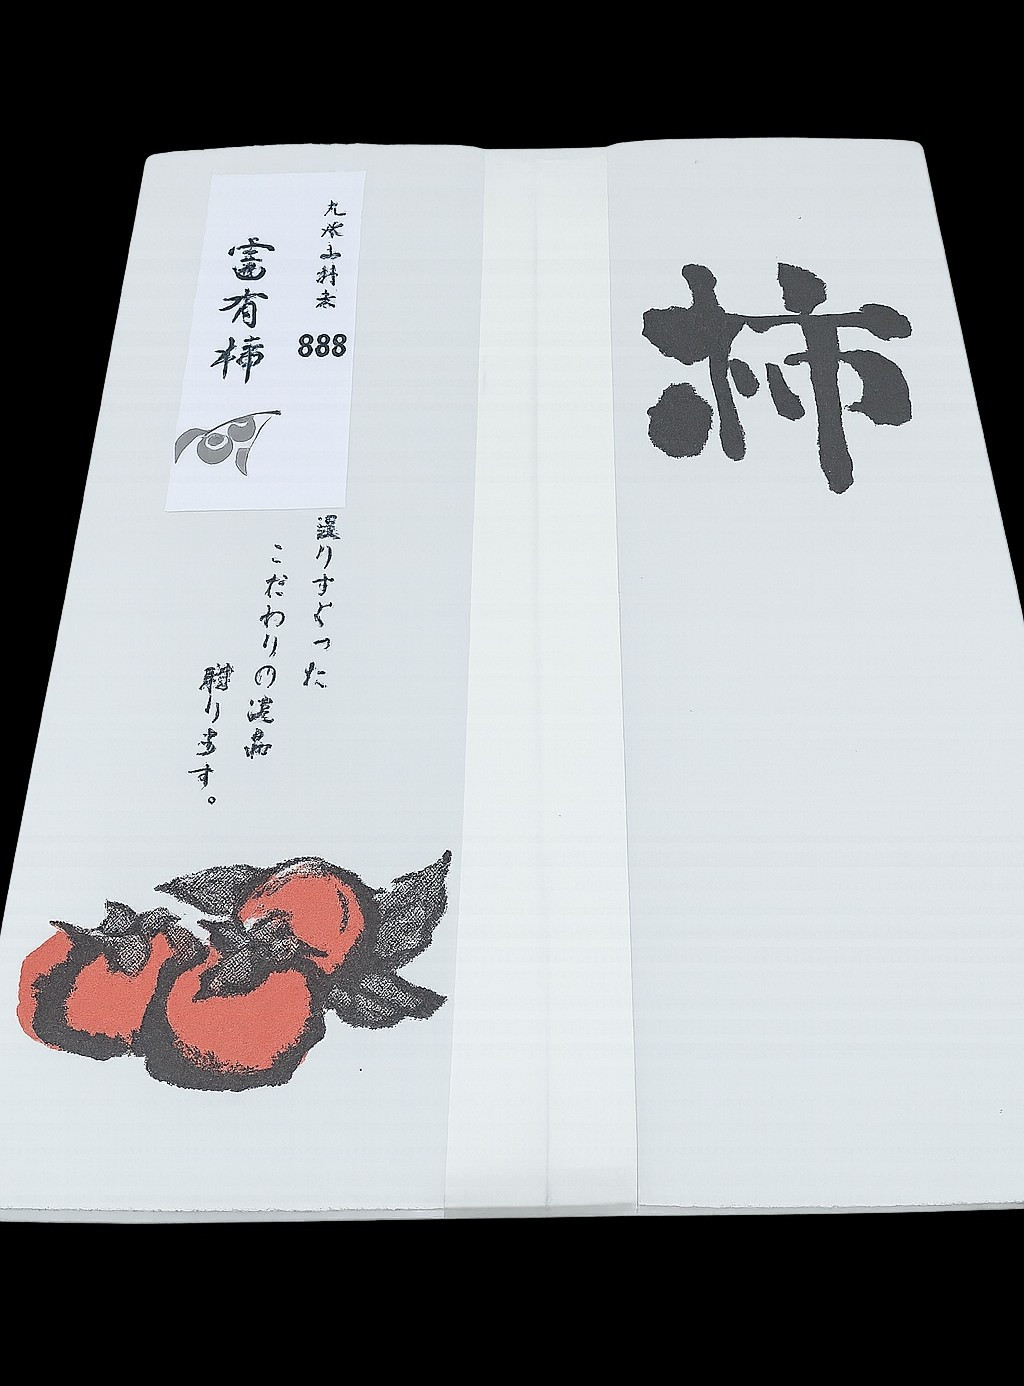 柿
888
富有柿
選りすぐった
こだわりの逸品
贈ります。